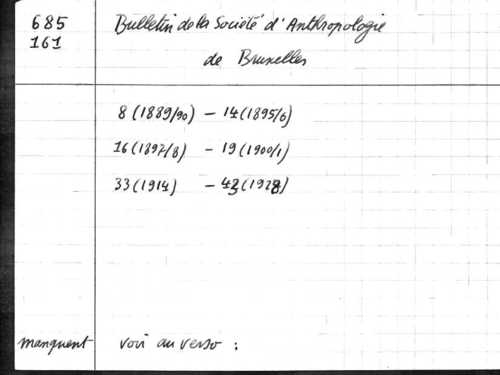 685
161
Bulletin de la Société d'Anthropologie
de Bruxelles
8 (1889/90) – 14 (1895/6)
16 (1897/8) – 19 (1900/1)
33 (1914) – 43 (1928)
manquent voir au verso :